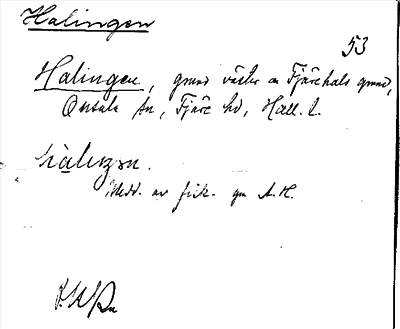 Halingen
53
Halingen, grund väster om Fjärehals grund,
Onsala sn, Fjäre hd, Hall. l.
hàlıŋən.
Medd. av fisk. gm A.H.